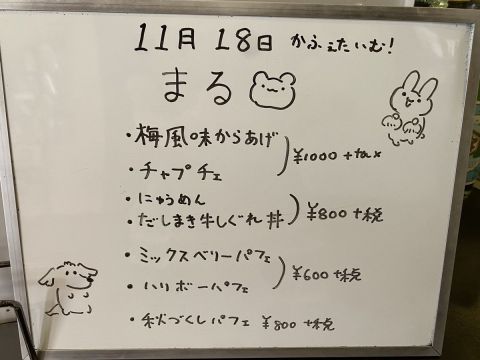 11月18日 かふぇたいむ!
まる
・梅風味からあげ
・チャプチェ
¥1000+tax
・にゅうめん
・だしまき牛しぐれ丼
¥800+税
・ミックスベリーパフェ
・ハリボーパフェ
¥600+税
・秋づくしパフェ ¥800+税